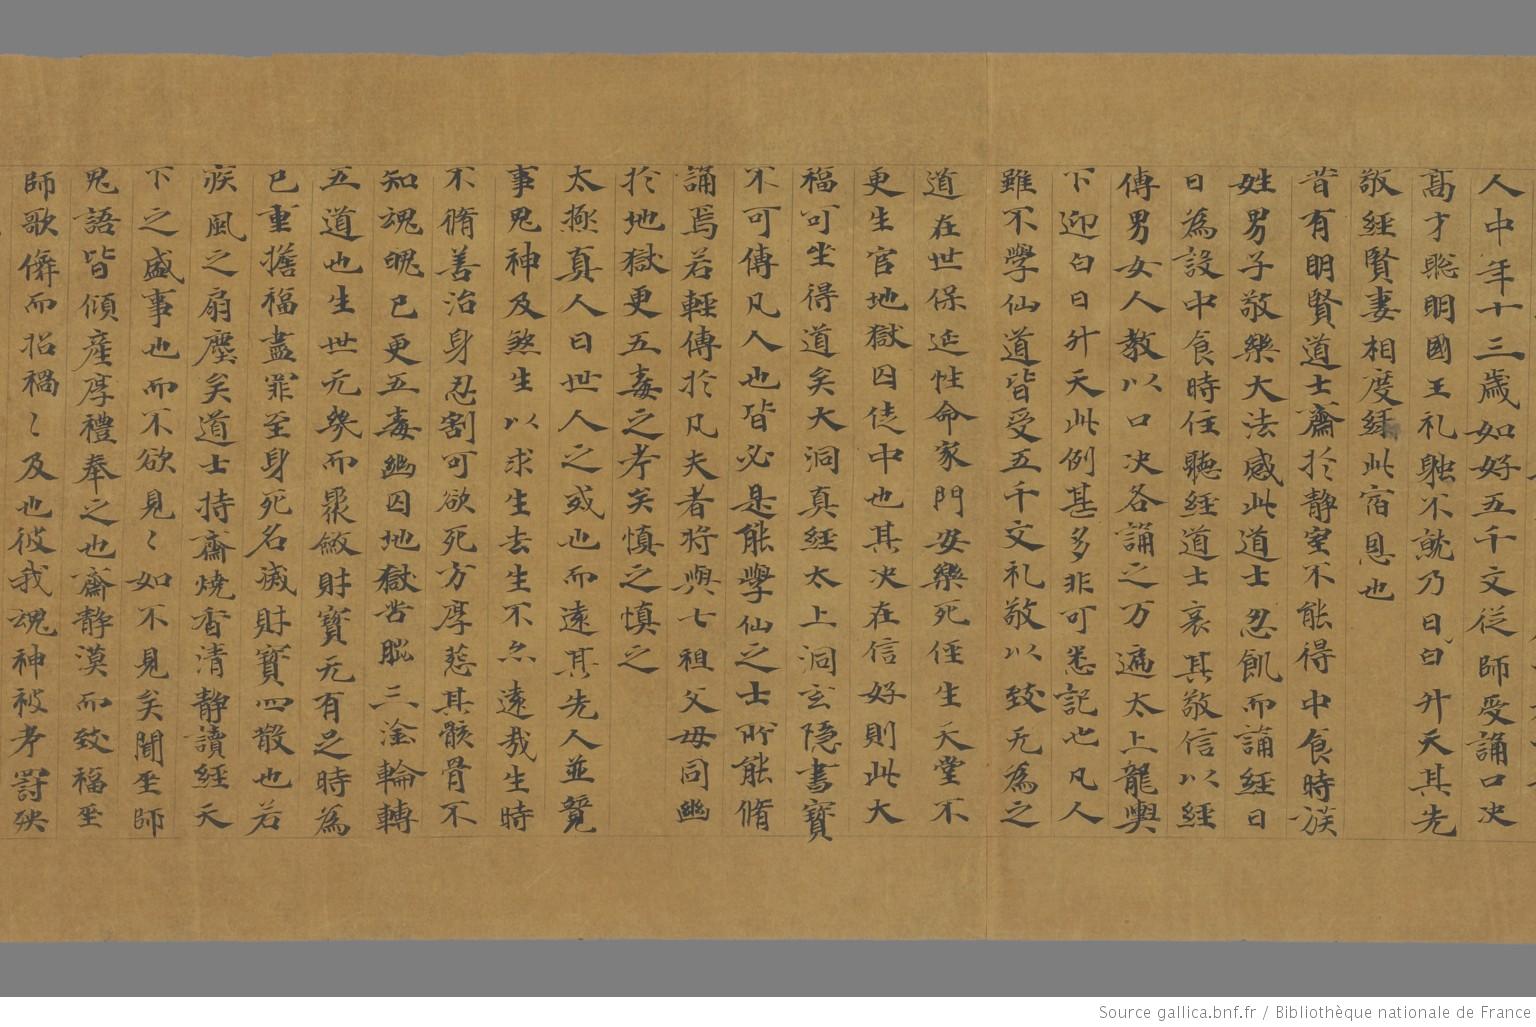 人中年十三歲如好五千文從師受誦口決
高才聡明國王礼躰不就乃日白日升天其先
敬經賢妻相度經此宿恩也
昔有明賢道士齋扵静室不能得中食時族
姓男子敬樂大法感此道士忍飢而誦經日
日為設中食時往聽經道士哀其敬信以經
傳男女人教以口决各誦之万遍太上龍輿
下迎白日升天此例甚多非可悉記也凡人
雖不學仙道皆受五千文礼敬以致无為之
道在世保延性命家門安樂死徑生天堂不
更生官地獄囚徒中也其决在信好則此大
福可坐得道矣大洞真經太上洞玄隱書寶
不可傳凡人也皆必是能學仙之士所能脩
誦焉若輕傳扵凡夫者将與七祖父母同幽
扵地獄更五毒之考矣慎之慎之
太極真人曰世人之或也而遠其先人並競
事鬼神及煞生以求生去生不亦遠哉生時
不脩善治身忍割可欲死方厚葬其骸骨不
知魂魄已更五毒幽囚地獄苦惱三塗輪轉
五道也生世无幾而聚斂財寶无有足時為
已重擔福盡罪至身死名滅財寶四散也若
疾風之扇塵矣道士持齋燒香清静讀經天
下之盛事也而不欲見〻如不見矣聞巫師
鬼語皆傾產厚禮奉之也齋静漠而致福巫
師歌儛而招禍〻及也彼我魂神被考罰殃